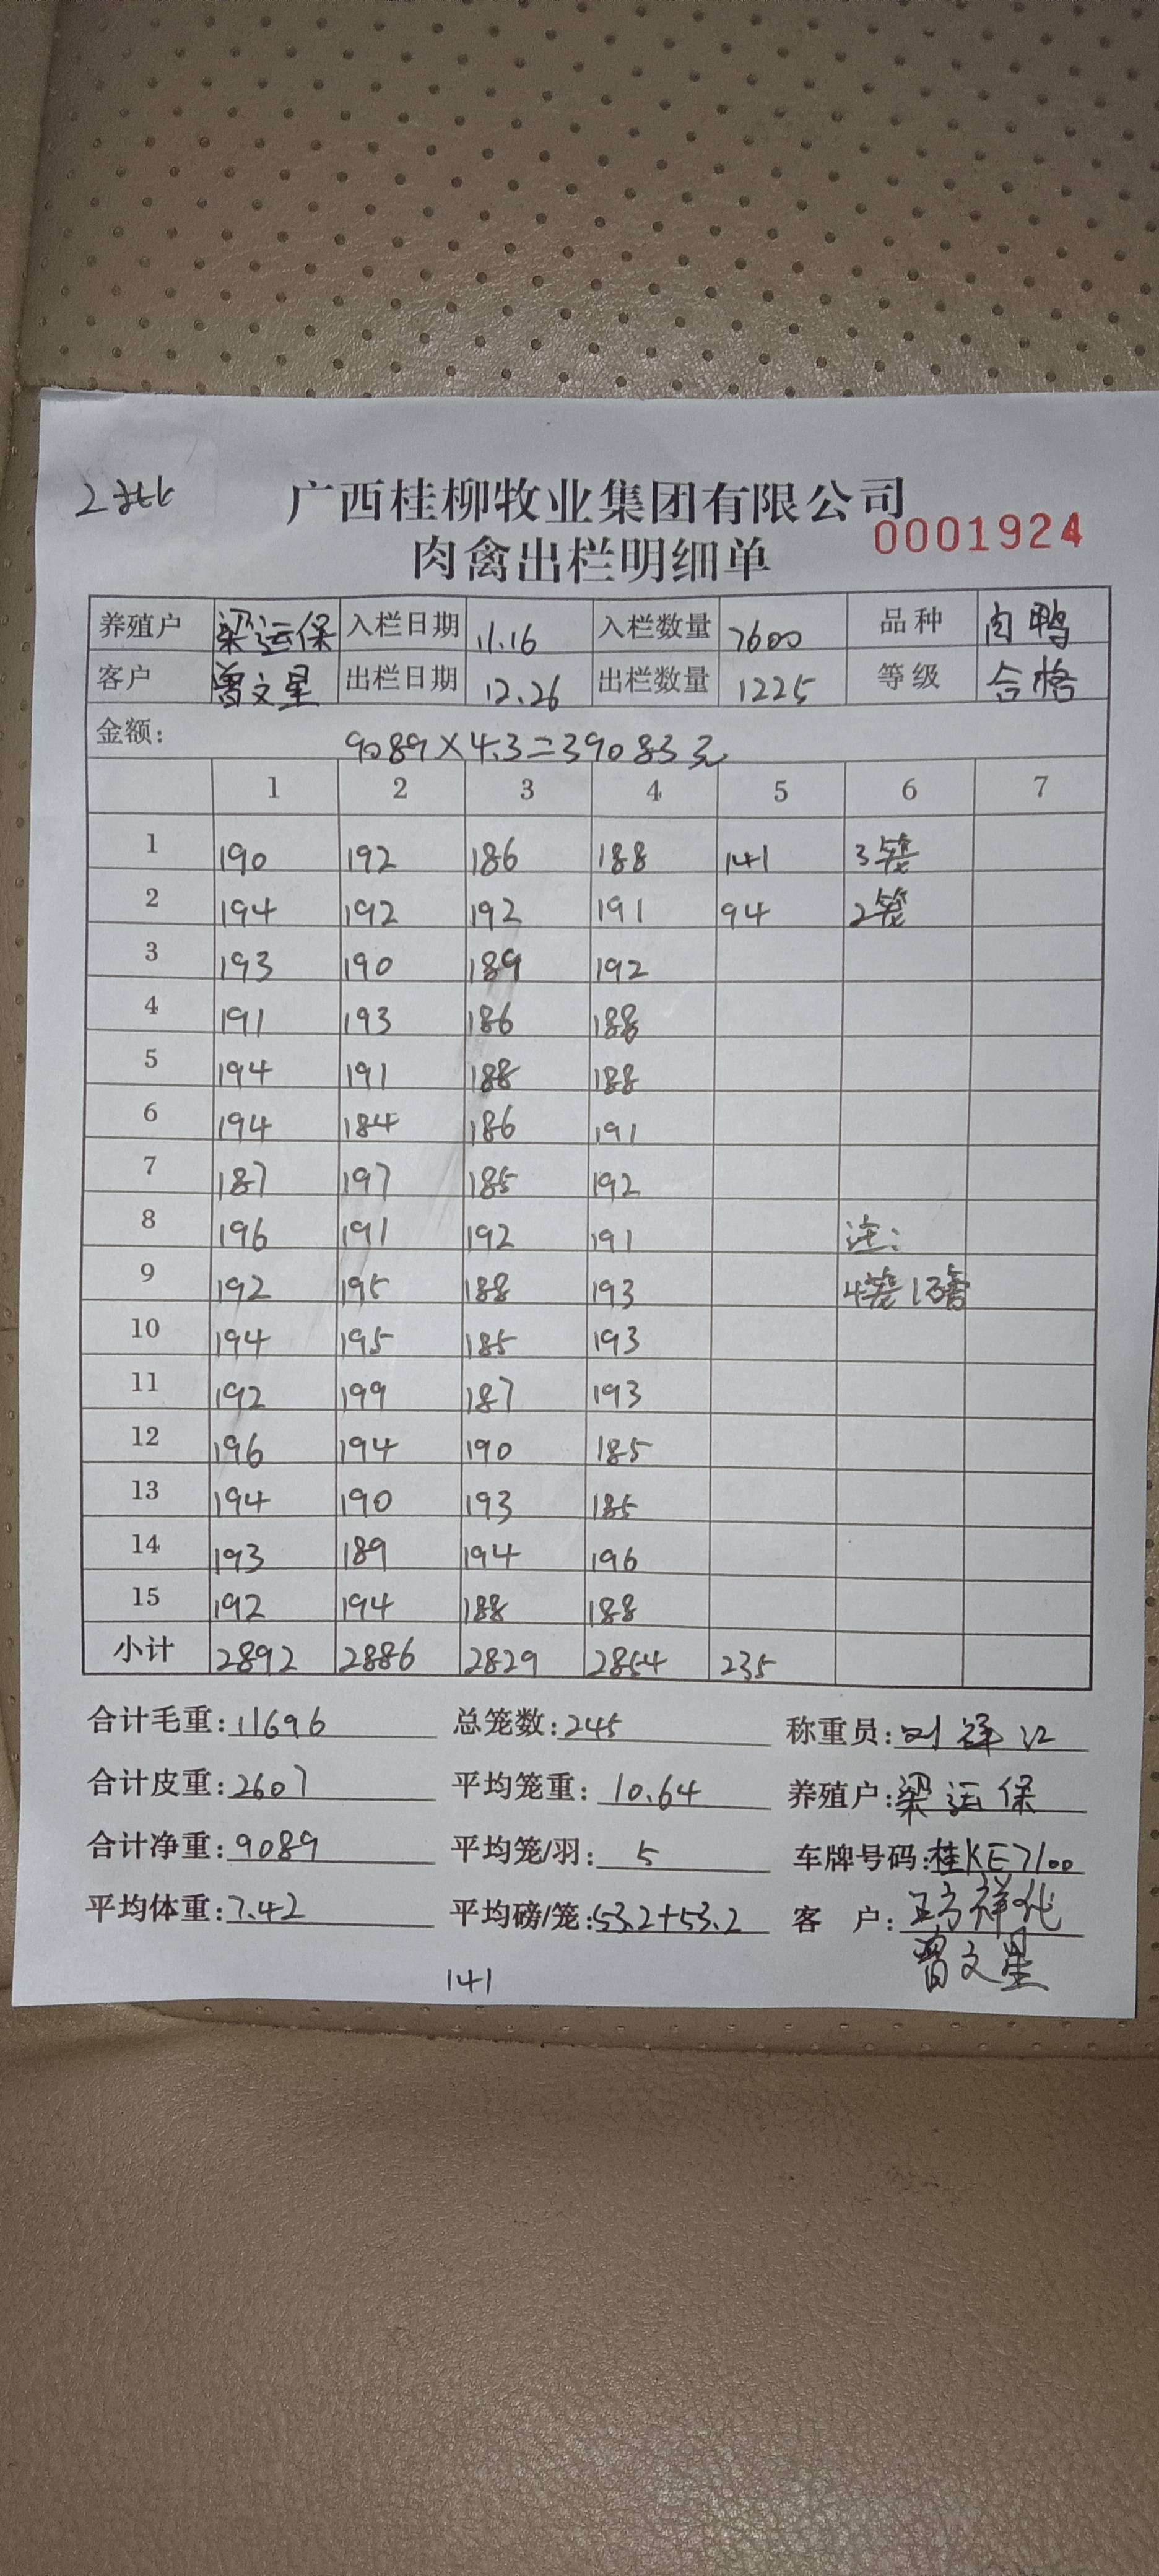 2批
广西桂柳牧业集团有限公司
0001924
肉禽出栏明细单
养殖户 梁运保 入栏日期 11.16 入栏数量 7600 品种 肉鸭
客户 曾文星 出栏日期 12.26 出栏数量 1225 等级 合格
金额: 9089×4.3=39083元
1 2 3 4 5 6 7
1 190 192 186 188 141 3笼
2 194 192 192 191 94 2笼
3 193 190 189 192
4 191 193 186 188
5 194 191 188 188
6 194 184 186 191
7 187 197 185 192
8 196 191 192 191 注:
9 192 195 188 193 4笼1磅
10 194 195 185 193
11 192 199 187 193
12 196 194 190 185
13 194 190 193 185
14 193 189 194 196
15 192 194 188 188
小计 2892 2886 2829 2854 235
合计毛重: 11696 总笼数: 245 称重员: 刘祥江
合计皮重: 2607 平均笼重: 10.64 养殖户: 梁运保
合计净重: 9089 平均笼/羽: 5 车牌号码: 桂KE7100
平均体重: 7.42 平均磅/笼: 53.2+53.2 客户: 祥化
曾文星
141